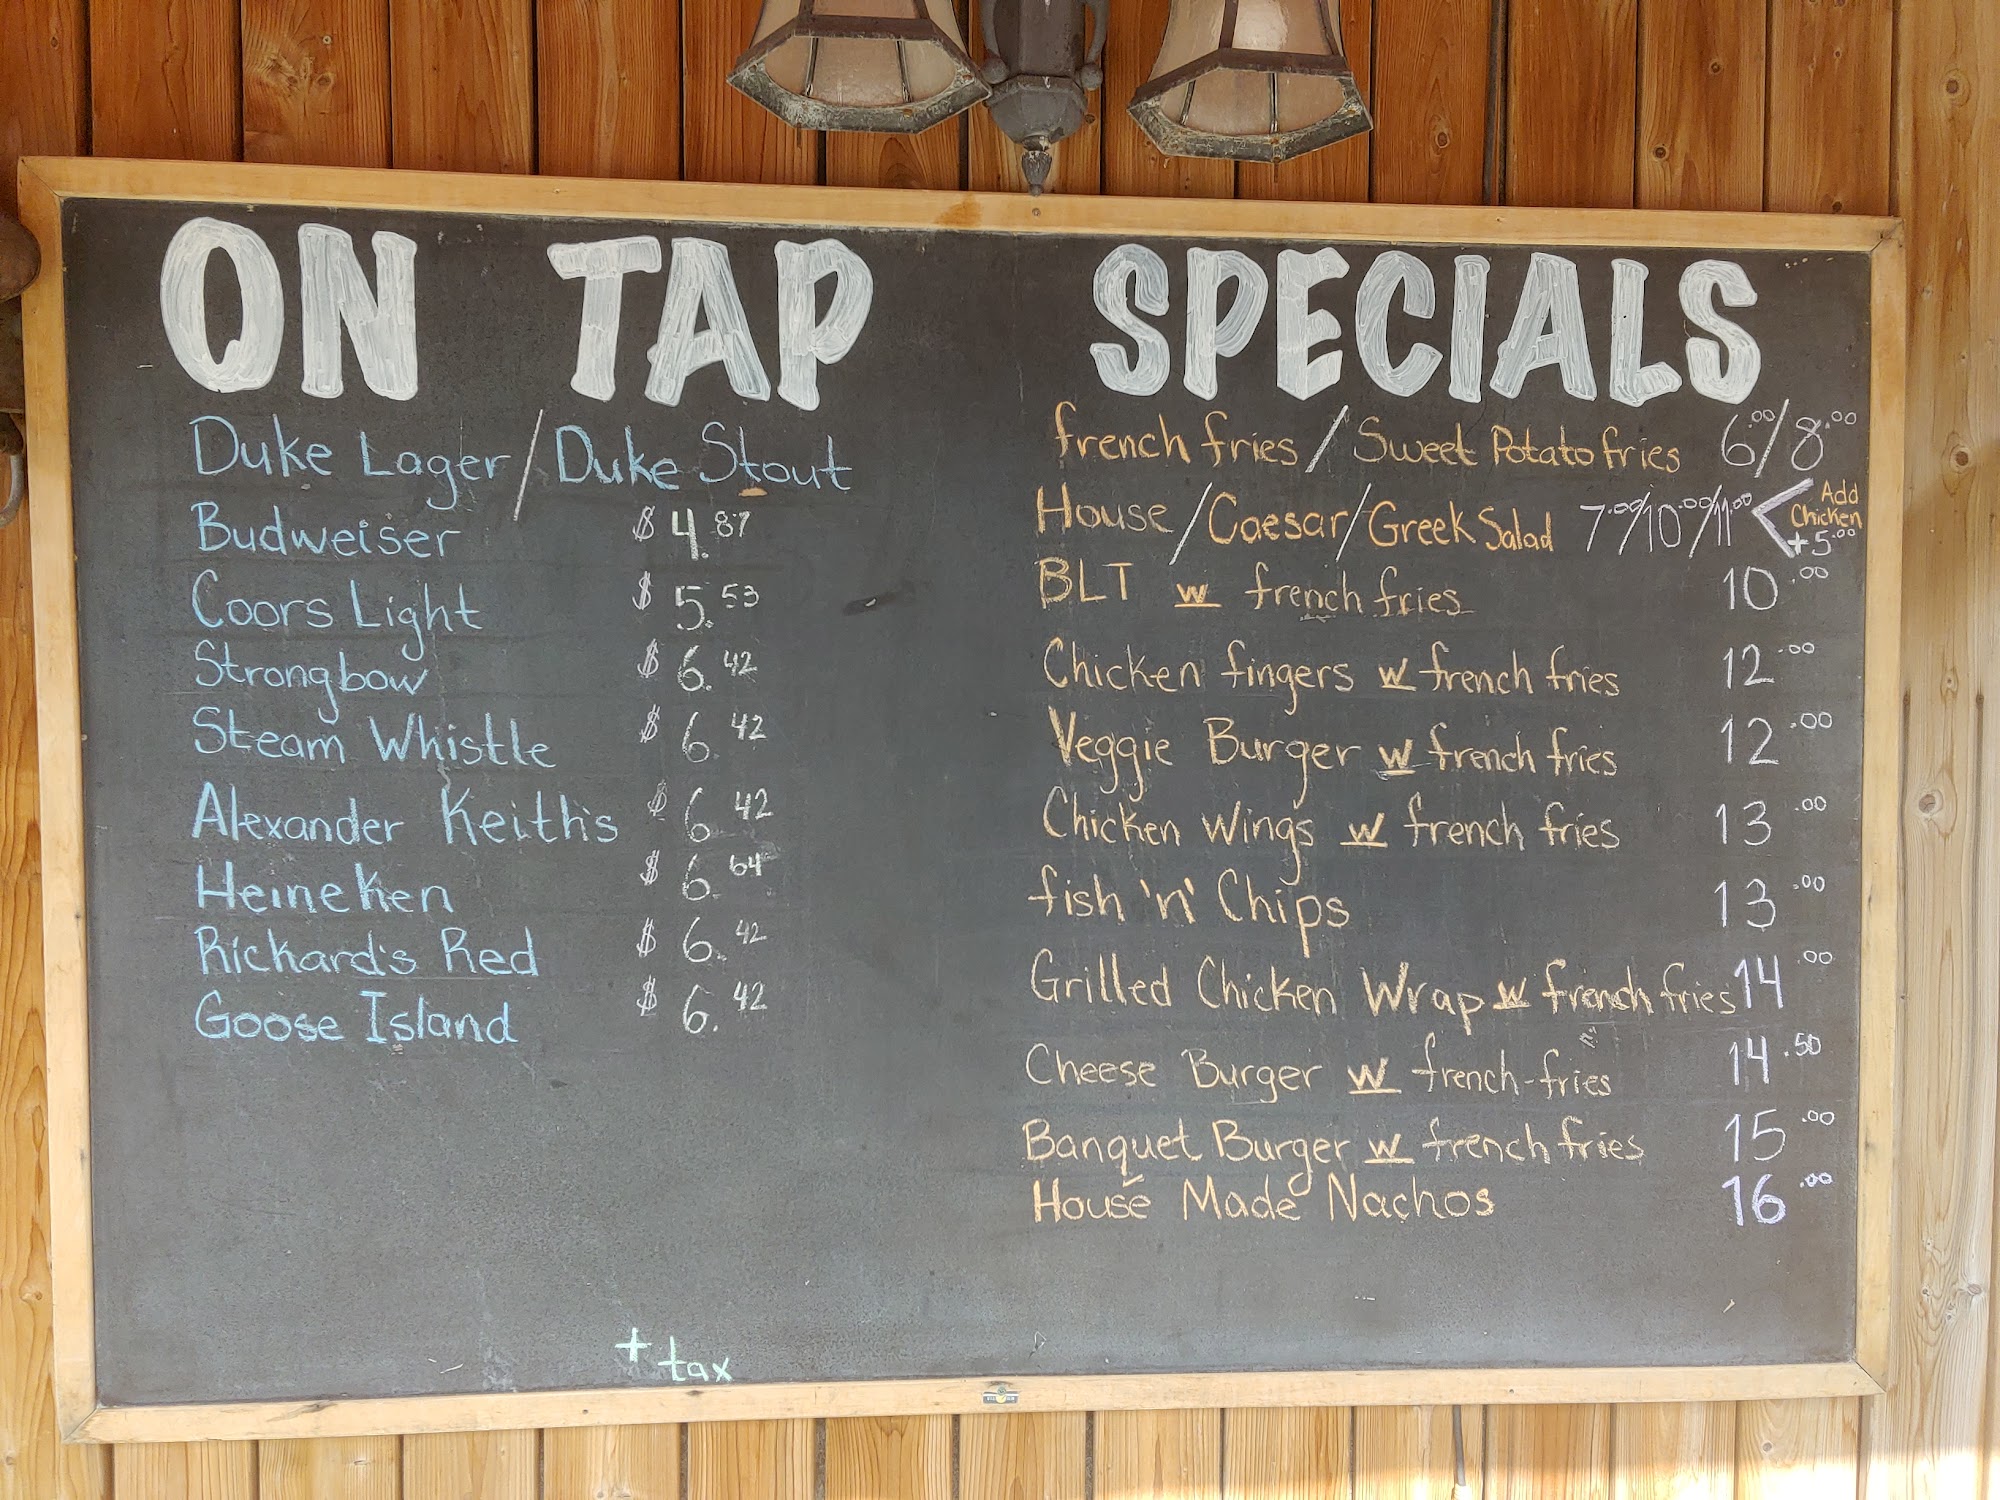 ON TAP
Duke Lager / Duke Stout
Budweiser $ 4.87
Coors Light $ 5.53
Strongbow $ 6.42
Steam Whistle $ 6.42
Alexander Keith's $ 6.42
Heineken $ 6.64
Rickard's Red $ 6.42
Goose Island $ 6.42
+ tax
SPECIALS
french fries / Sweet Potato fries 6.00/8.00
House / Caesar / Greek Salad 7.00/10.00/11.00 < Add Chicken +5.00
BLT w french fries 10.00
Chicken fingers w french fries 12.00
Veggie Burger w french fries 12.00
Chicken Wings w french fries 13.00
fish 'n' Chips 13.00
Grilled Chicken Wrap w french fries 14.00
Cheese Burger w french-fries 14.50
Banquet Burger w french fries 15.00
House Made Nachos 16.00